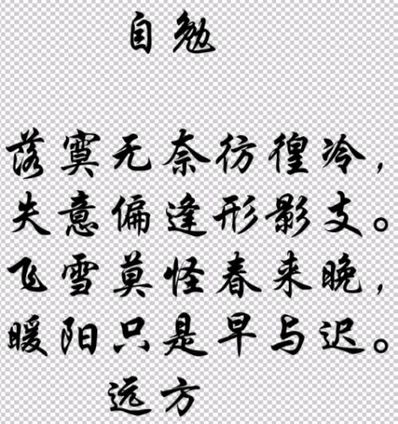 自勉
落寞无奈彷徨冷，
失意偏逢形影支。
飞雪莫怪春来晚，
暖阳只是早与迟。
远方